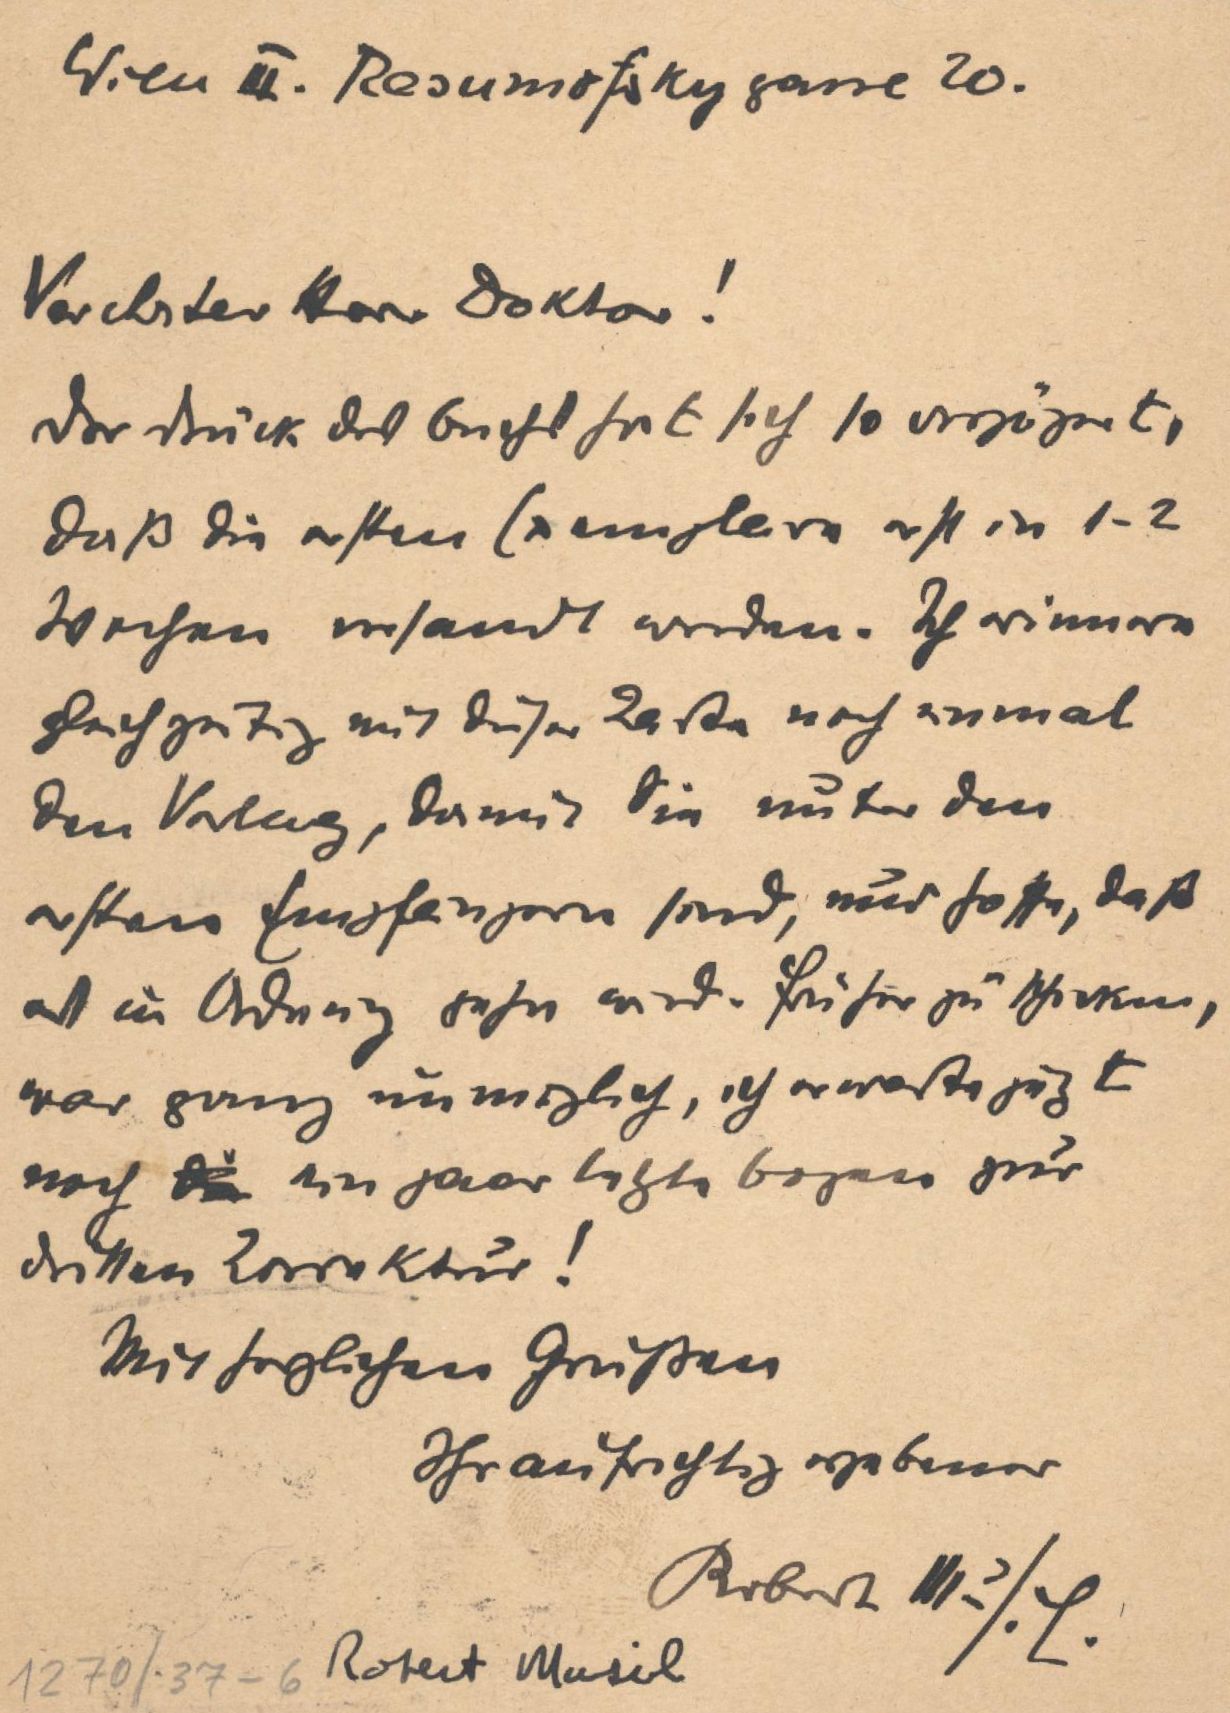 Wien III. Rasumofskygasse 20.
Verehrter Herr Doktor!
Der Druck des Buchs hat sich so verzögert,
daß die ersten Exemplare erst in 1-2
Wochen versandt werden. Ich erinnere
gleichzeitig mit dieser Karte noch einmal
den Verlag, damit Sie unter den
ersten Empfängern sind, und hoffe, daß
es in Ordnung gehn wird. Früher zu schicken,
war ganz unmöglich, ich erwarte jetzt
noch die ein paar letzte Bogen zur
dritten Korrektur!
Mit herzlichen Grüßen
Ihr aufrichtig ergebener
Robert Musil.
1270/.37-6 Robert Musil